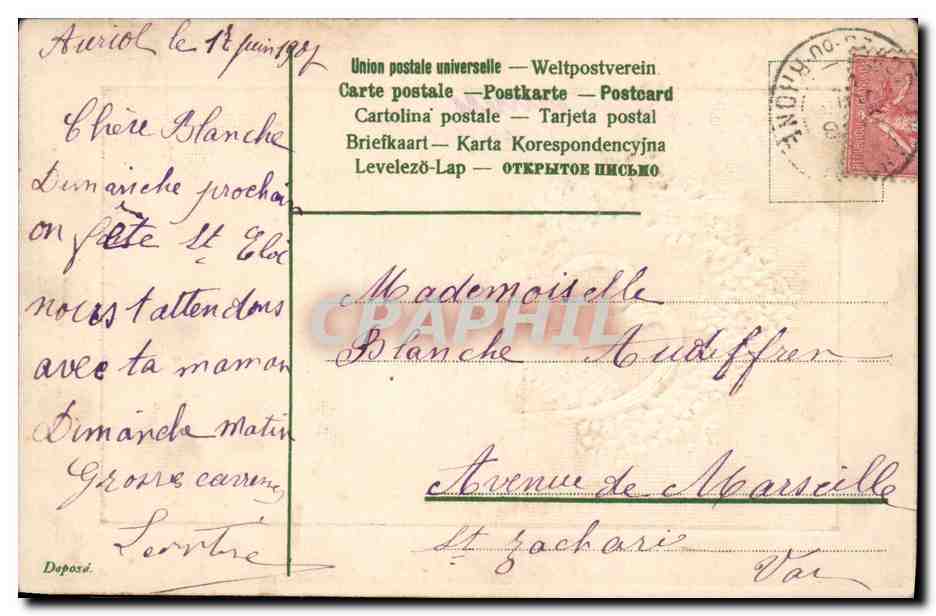 Auriol le 17 juin 1907
Chère Blanche
Dimanche prochain
on fête St Eloi
nous t'attendons
avec ta maman
Dimanche matin
Grosses caresses
Léontine
Deposé.
Union postale universelle — Weltpostverein
Carte postale — Postkarte — Postcard
Cartolina postale — Tarjeta postal
Briefkaart — Karta Korespondencyjna
Levelezö-Lap — ОТКРЫТОЕ ПИСЬМО
BOUCHES-DU-RHONE
Mademoiselle
Blanche Audiffren
Avenue de Marseille
St Zacharie
Var
CPAPHIL